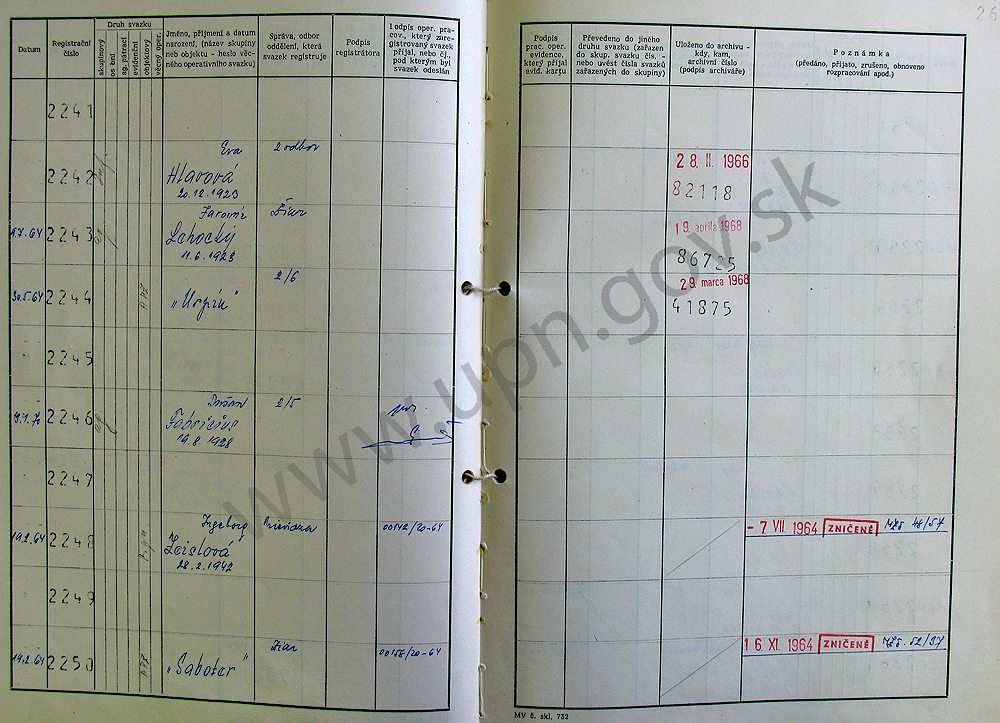 26
Datum
Registrační
číslo
Druh svazku
skupinový
os bní
ag. pátrací
evidenční
objektový
věcný oper.
Jméno, příjmení a datum
narození, (název skupiny
neb objektu - heslo věc-
ného operativního svazku)
Správa, odbor
oddělení, která
svazek registruje
Podpis
registrátora
Podpis oper. pra-
cov., který zare-
gistrovaný svazek
přijal, nebo čj.,
pod kterým byl
svazek odeslán
Podpis
prac. oper.
evidence,
který přijal
evid. kartu
Převedeno do jiného
druhu svazku (zařazen
do skup. svazku čís. -
nebo uvést čísla svazků
zařazených do skupiny)
Uloženo do archívu -
kdy, kam,
archivní číslo
(podpis archiváře)
Poznámka
(předáno, přijato, zrušeno, obnoveno
rozpracování apod.)
2241
Eva 2 odbor
2242 Hlavová
20.12.1923
28. II. 1966
82118
Jaromír Žiar
2243 Lehocký
11.6.1923
19. apríla 1968
86725
2/6
30.5.64 2244 "Urpín"
29. marca 1968
41875
2245
Dušan 2/5
2246 Fabricius
19.8.1928
2247
Ingeborg Prievidza 00142/20-64
19.2.64 2248 Zeislová
28.2.1942
- 7. VII. 1964 ZNIČENÉ
2249
Žiar 00156/20-64
19.2.64 2250 "Saboter"
16. XI. 1964 ZNIČENÉ
MV č. skl. 732
www.upn.gov.sk